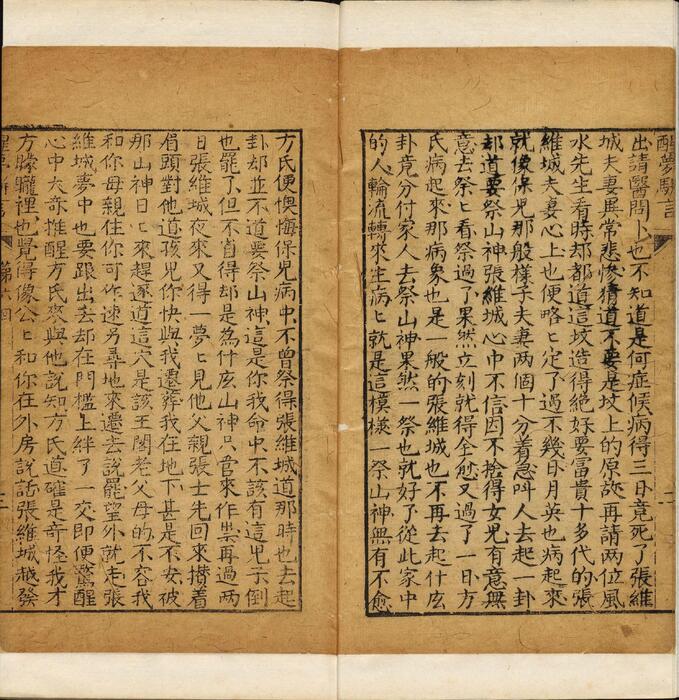 醒夢駢言
出請醫問卜也不知道是何症候病得三日竟死了張維
城夫妻異常悲慘猜道不要是坟上的原故再請兩位風
水先生看時却都道這坟造得絕好要富貴十多代的張
維城夫妻心上也便略ヒ定了過不幾日月英也病起來
就像保兒那般樣子夫妻兩個十分着急叫人去起一卦
却道要祭山神張維城心中不信因不捨得女兒有意無
意去祭ヒ看祭過了果然立刻就得全愈又過了一日方
氏病起來那病象也是一般的張維城也不再去起什庅
卦竟分付家人去祭山神果然一祭也就好了從此家中
的人輪流轉來生病ヒ就是這模樣一祭山神無有不愈
方氏便懊悔保兒病中不曾祭得張維城道那時也去起
卦却並不道要祭山神這是你我命中不該有這兒子倒
也罷了但不省得却是為什庅山神只管來作祟再過兩
日張維城夜來又得一夢ヒ見他父親張士先回來攢着
眉頭對他道孩兒你快與我遷葬我在地下甚是不安被
那山神日ヒ來趕逐道這穴是該王閣老父母的不容我
和你母親住你可作速另尋地來遷去說罷望外就走張
維城夢中也要跟出去却在門檻上絆了一交即便驚醒
心中大奇推醒方氏來與他說知方氏道確是奇怪我才
方矇矓裡也覺得像公ヒ和你在外房說話張維城越發
第六回